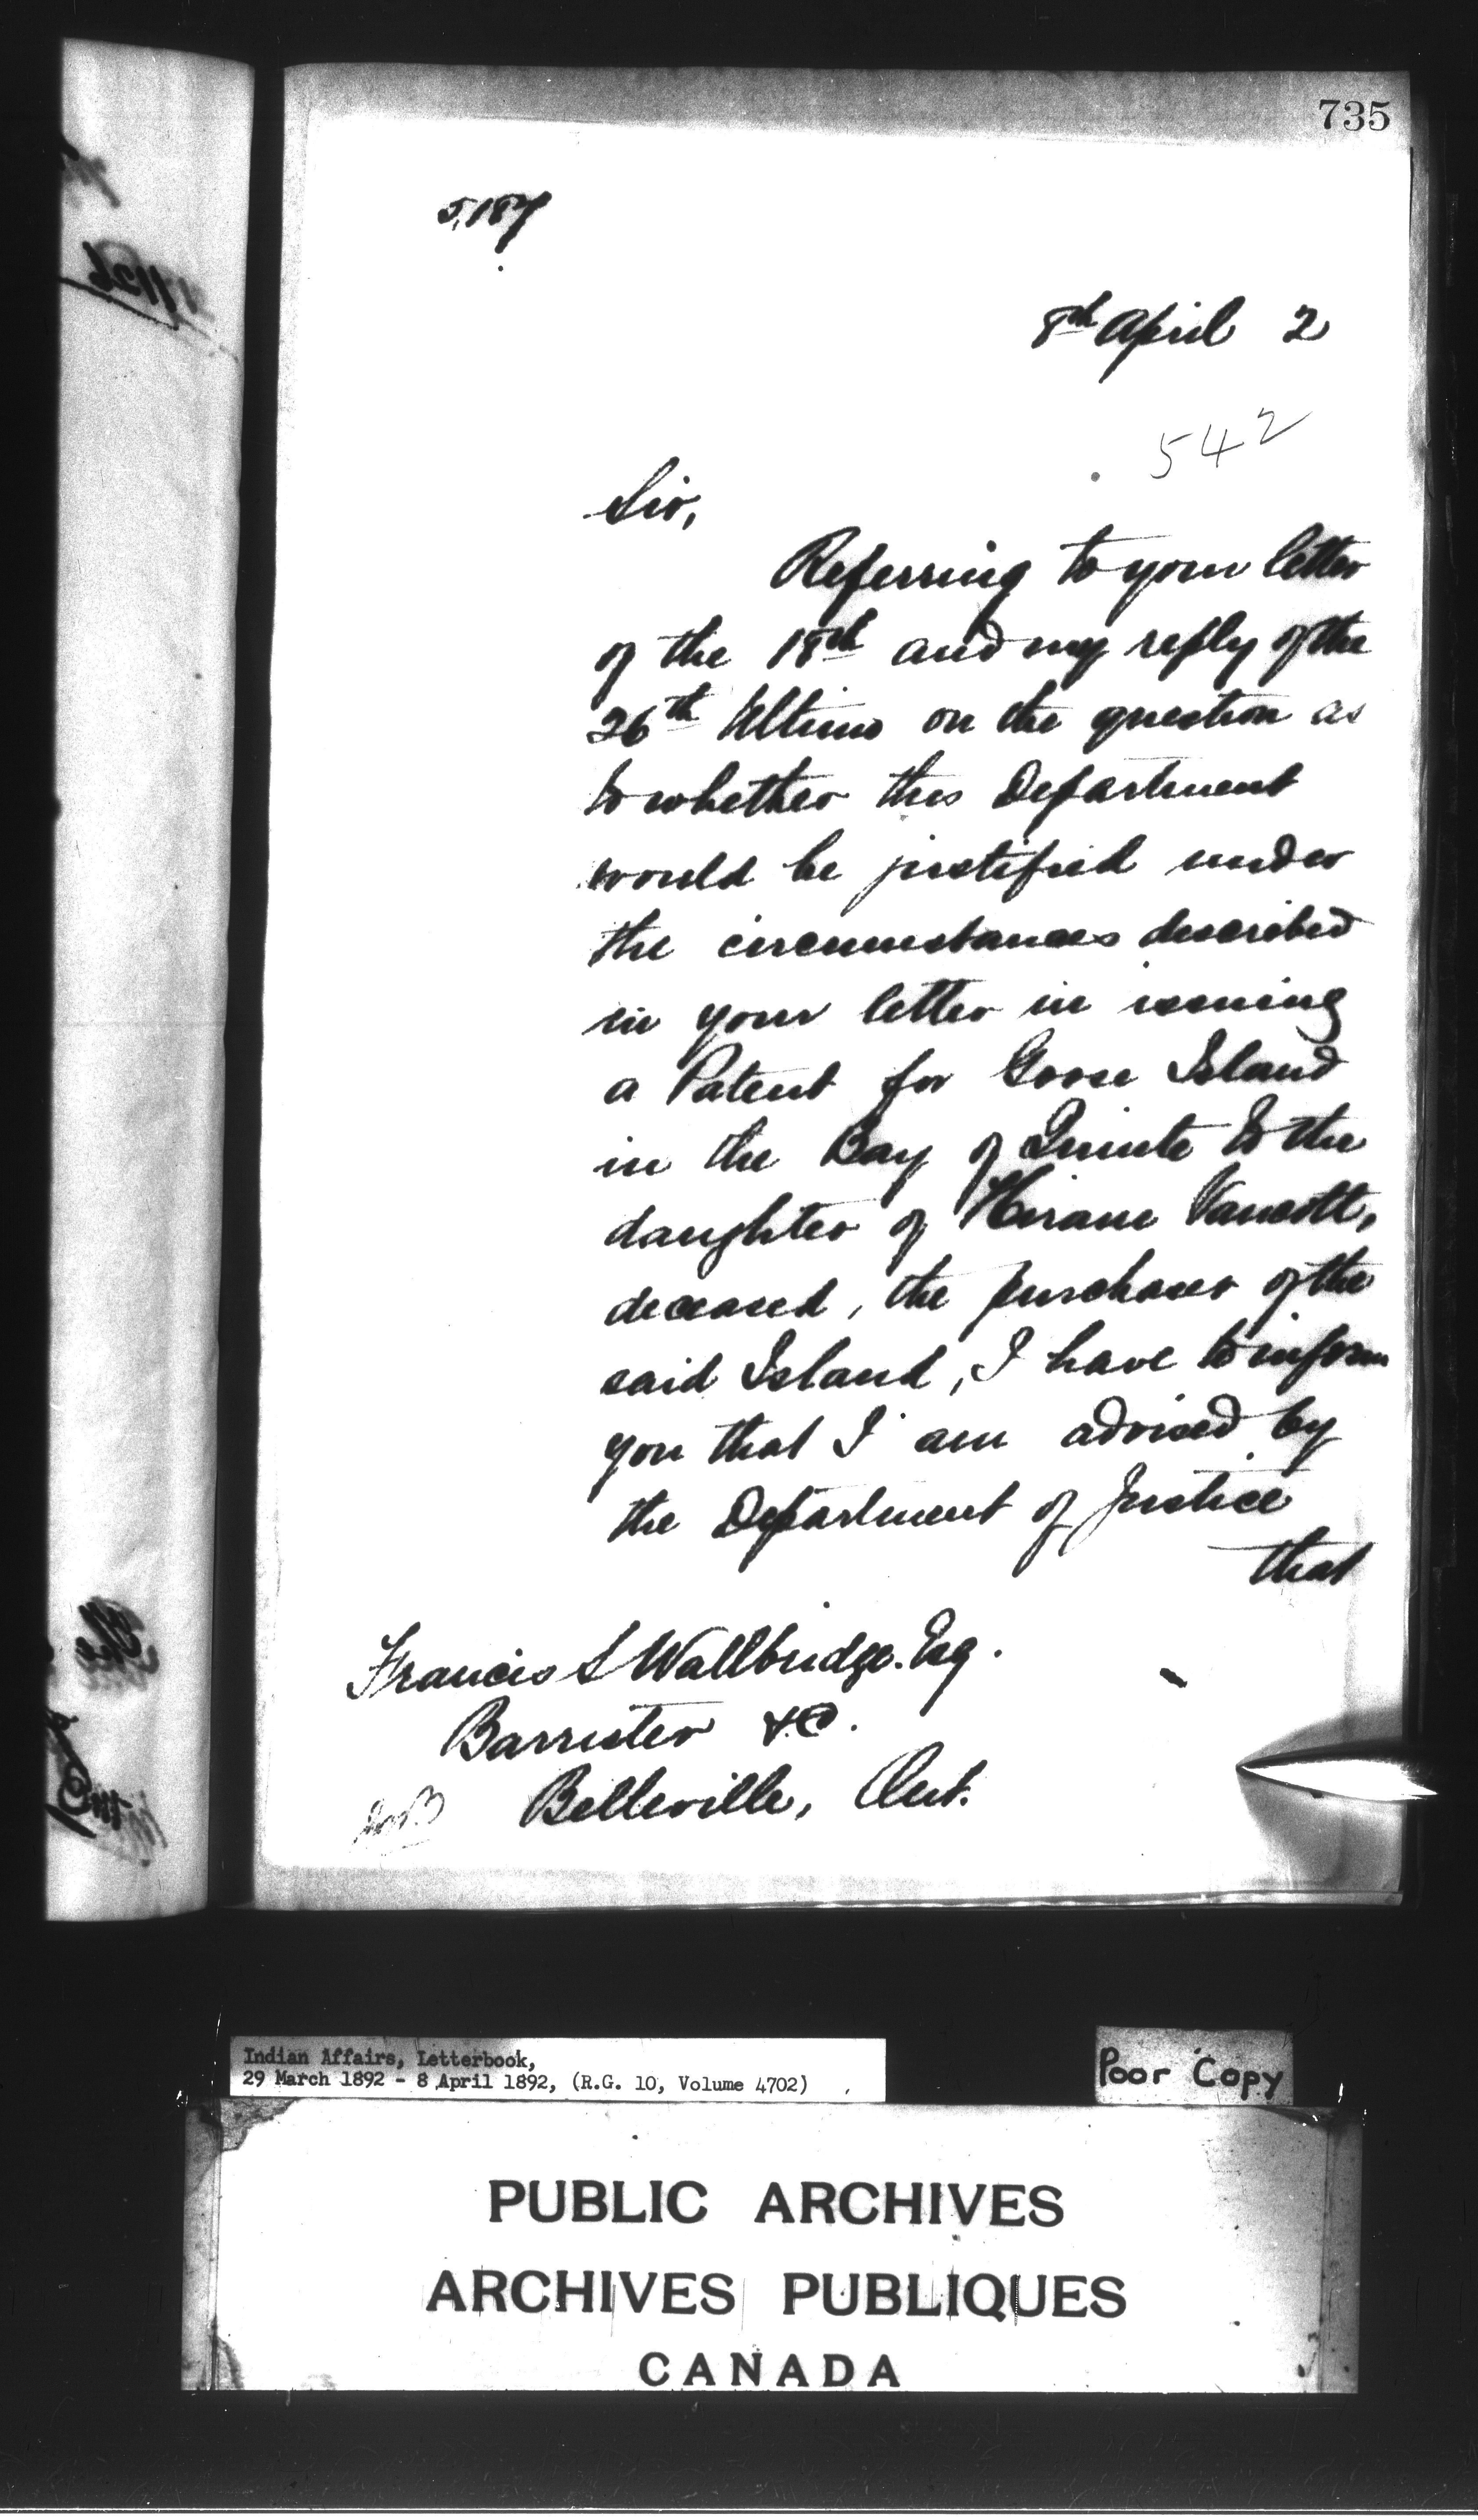 735
5,187
8th April 2
542
Sir,
Referring to your letter
of the 18th and my reply of the
26th Ultimo on the question as
to whether this Department
would be justified under
the circumstances described
in your letter in issuing
a Patent for Goose Island
in the Bay of Quinte to the
daughter of Hiram Vancott,
deceased, the purchaser of the
said Island, I have to inform
you that I am advised by
the Department of Justice
that
Francis S Wallbridge. Esq.
Barrister &c.
Belleville, Ont.
Indian Affairs, Letterbook,
29 March 1892 - 8 April 1892, (R.G. 10, Volume 4702)
Poor Copy
PUBLIC ARCHIVES
ARCHIVES PUBLIQUES
CANADA